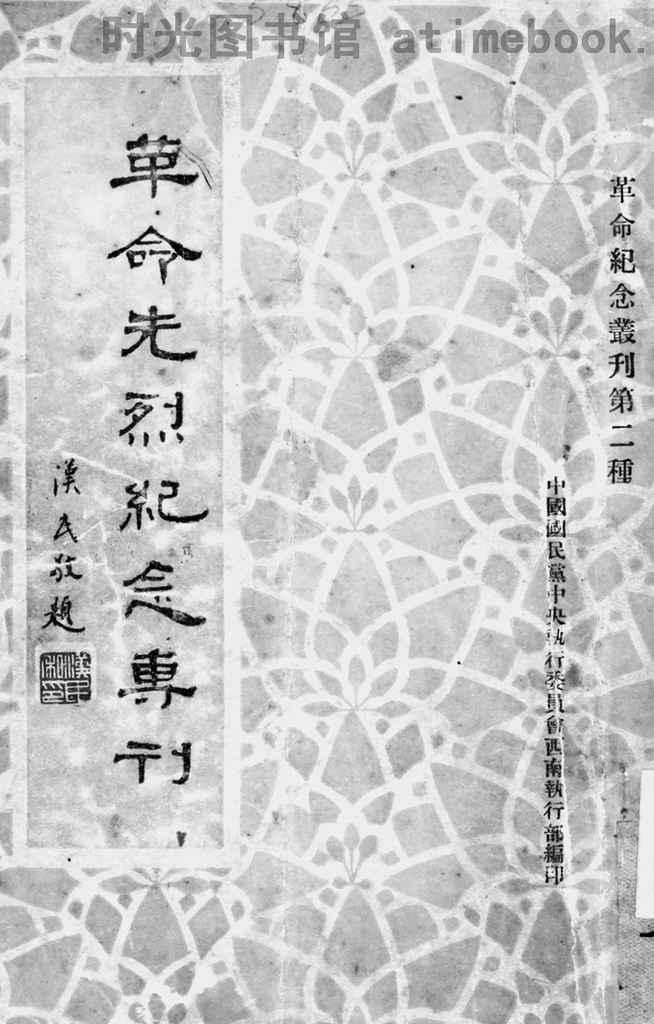 时光图书馆 atimebook.
革命紀念叢刊第二種
中國國民黨中央執行委員會西南執行部編印
革命先烈紀念專刊
漢民敬題